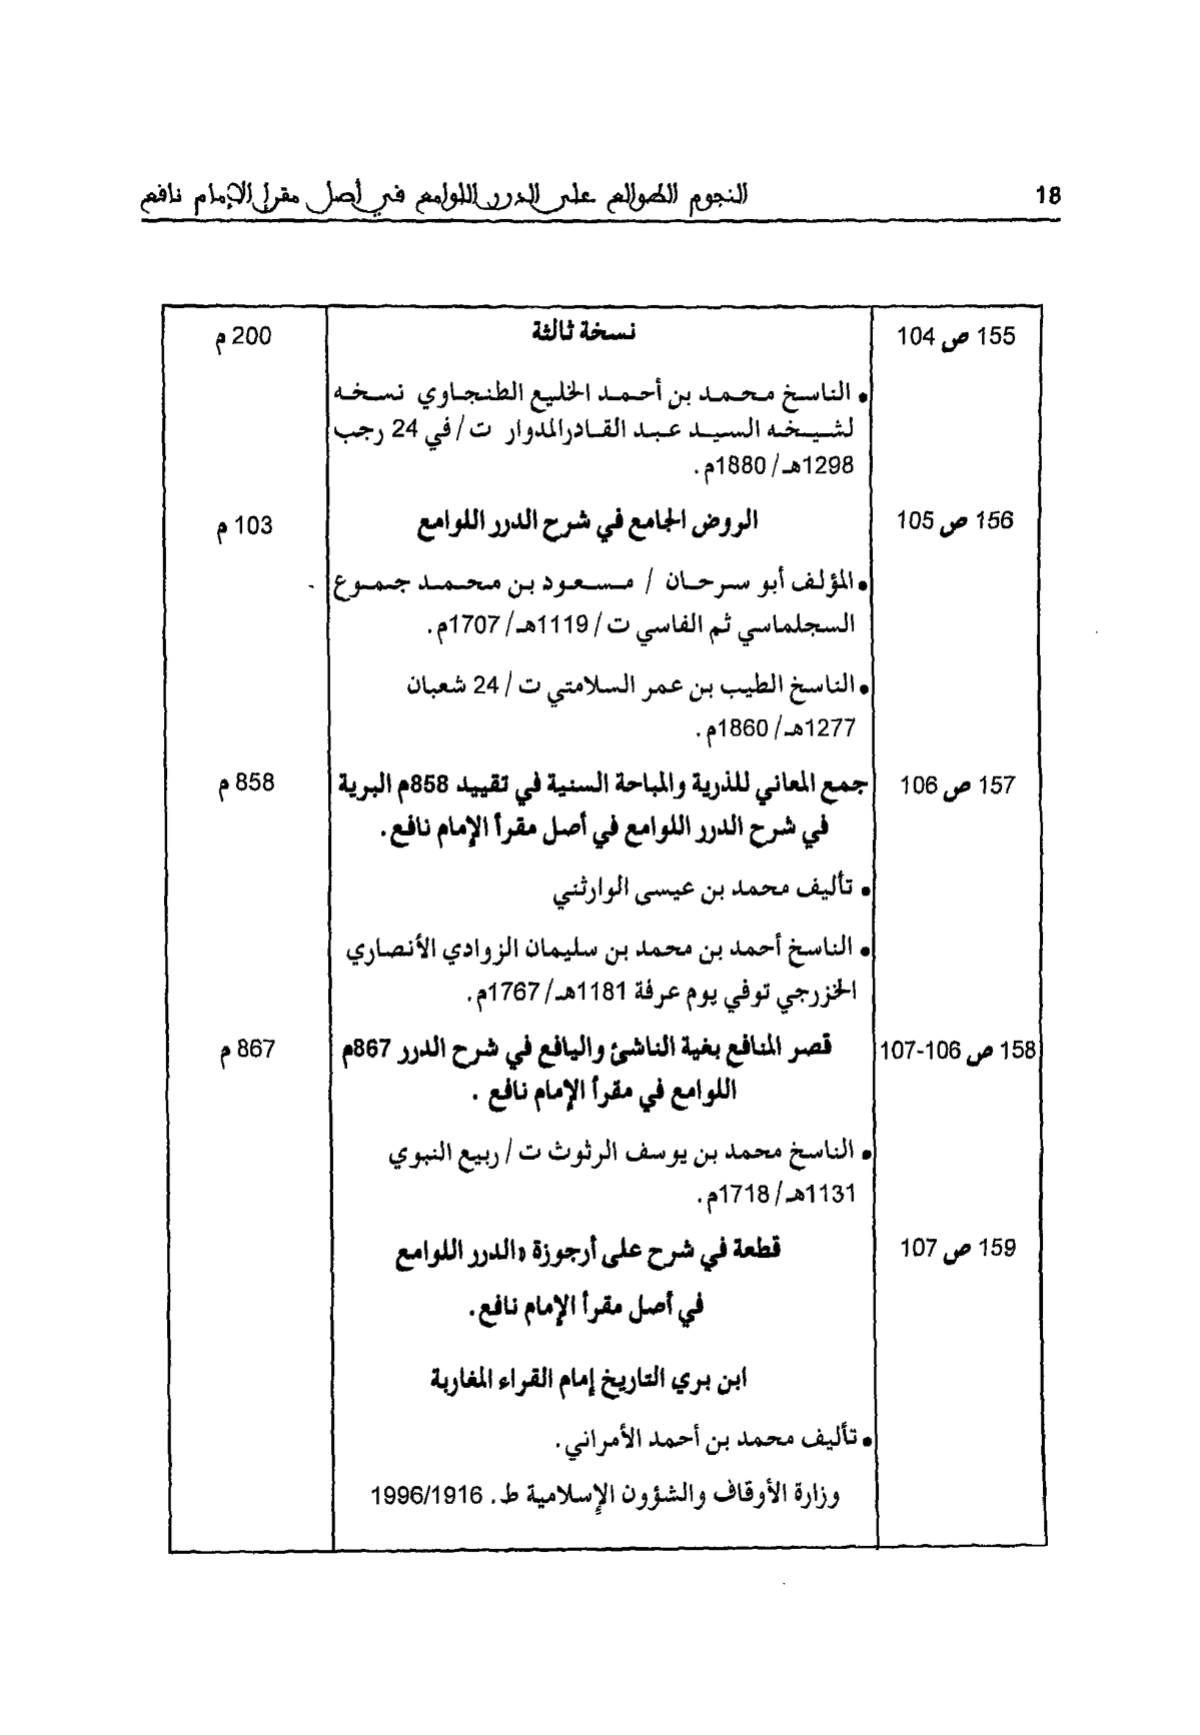 18
النجوم الطوالع على الدرر اللوامع في أصل مقرإ الإمام نافع
155 ص 104
نسخة ثالثة
200 م
• الناسخ محمد بن أحمد الخليع الطنجاوي نسخه
لشيخه السيد عبد القادرالمدوار ت/ في 24 رجب
1298هـ/ 1880م.
156 ص 105
الروض الجامع في شرح الدرر اللوامع
103 م
• المؤلف أبو سرحان / مسعود بن محمد جموع
السجلماسي ثم الفاسي ت/ 1119هـ/ 1707م.
• الناسخ الطيب بن عمر السلامتي ت/ 24 شعبان
1277هـ/ 1860م.
157 ص 106
جمع المعاني للذرية والمباحة السنية في تقييد 858م البرية
858 م
في شرح الدرر اللوامع في أصل مقرأ الإمام نافع.
• تأليف محمد بن عيسى الوارثني
• الناسخ أحمد بن محمد بن سليمان الزوادي الأنصاري
الخزرجي توفي يوم عرفة 1181هـ/ 1767م.
158 ص 106-107
قصر المنافع بغية الناشئ واليافع في شرح الدرر 867م
867 م
اللوامع في مقرأ الإمام نافع .
• الناسخ محمد بن يوسف الرثوث ت/ ربيع النبوي
1131هـ/ 1718م.
159 ص 107
قطعة في شرح على أرجوزة «الدرر اللوامع
في أصل مقرأ الإمام نافع.
ابن بري التاريخ إمام القراء المغاربة
• تأليف محمد بن أحمد الأمراني.
وزارة الأوقاف والشؤون الإسلامية ط. 1996/1916